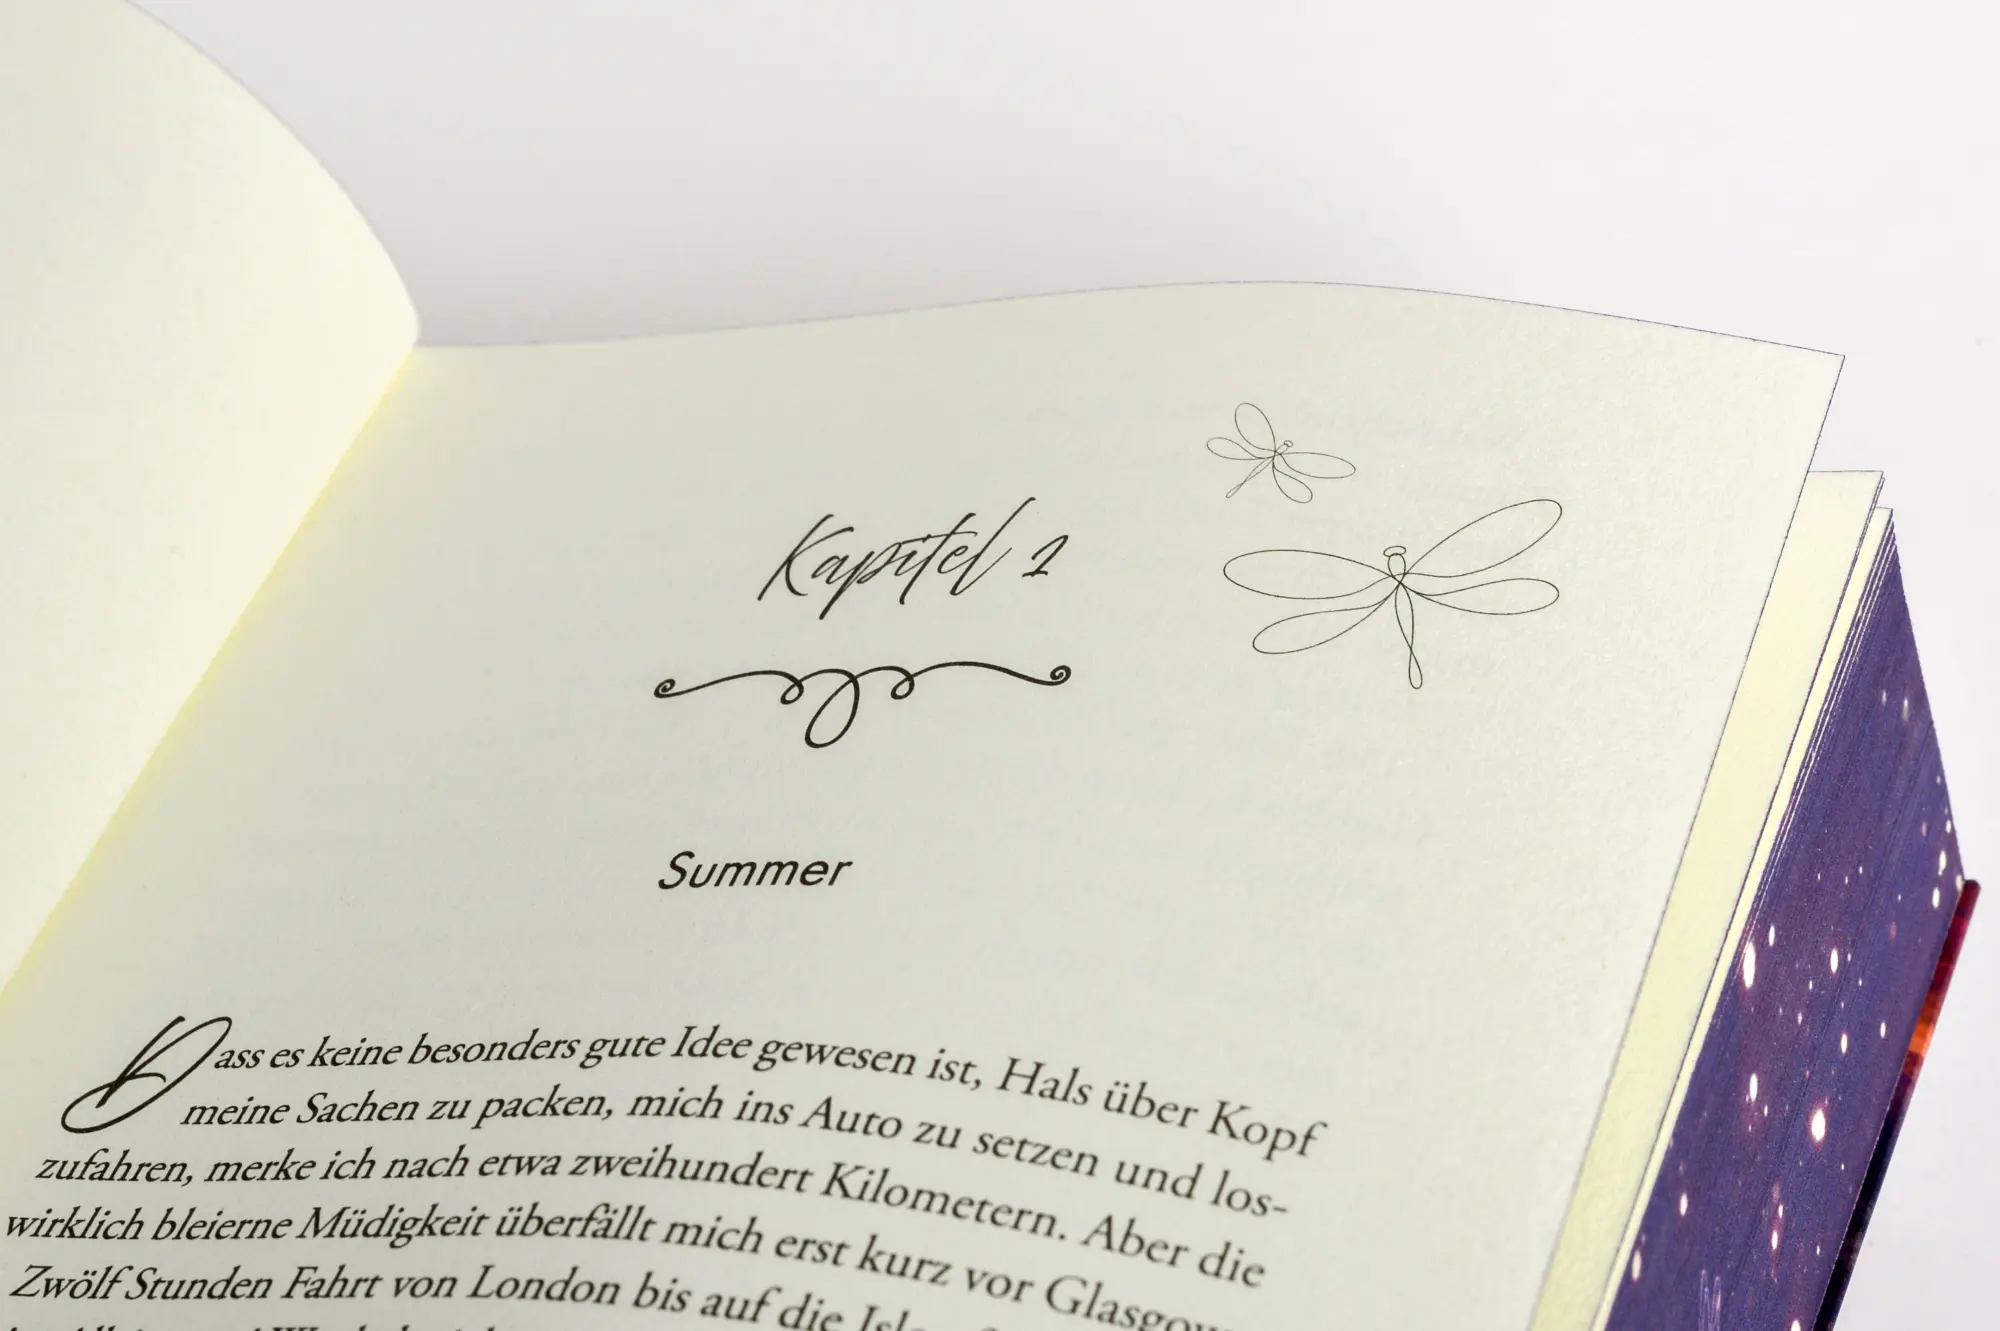 Kapitel 1
Summer
Dass es keine besonders gute Idee gewesen ist, Hals über Kopf
meine Sachen zu packen, mich ins Auto zu setzen und los-
zufahren, merke ich nach etwa zweihundert Kilometern. Aber die
wirklich bleierne Müdigkeit überfällt mich erst kurz vor Glasgow.
Zwölf Stunden Fahrt von London bis auf die